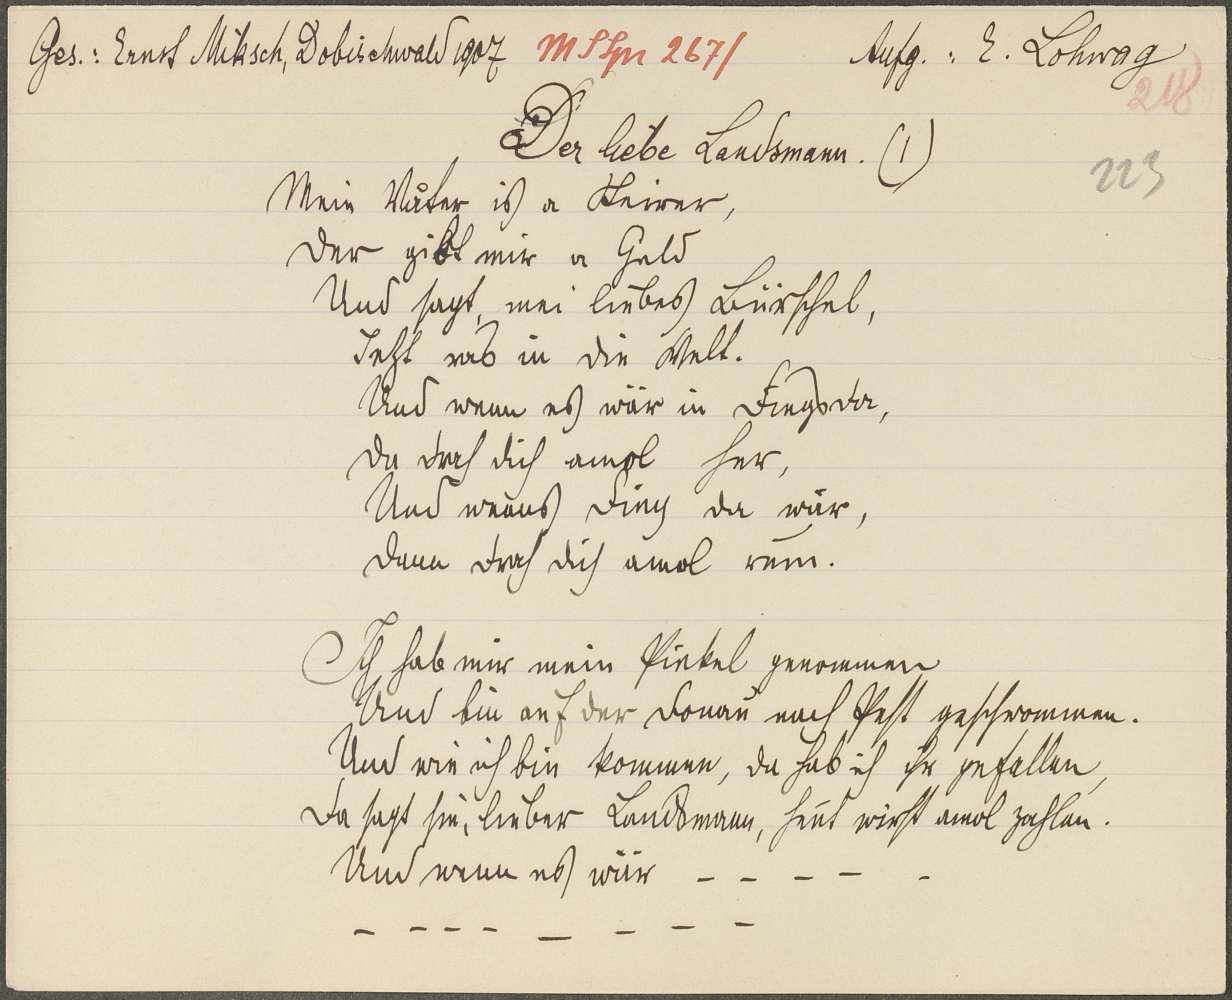 Ges.: Ernst Miksch, Dobischwald 1907 Aufg.: E. Lohwag
267/
218
Der liebe Landsmann. (1)
223
Mein Våter is a Steirer,
Der gibt mir a Geld
Und sagt, mei liebes Bürschel,
Jetzt in die Welt.
Und wenn es wär in
Da drah dich amol her,
Und wenns da wär,
Dann drah dich amol rum.
Ich hab mir mein Pinkel genommen
Und bin auf der Donau nach Pest geschwommen.
Und wie ich bin kommen, da hab ich ihr gefallen,
Da sagt sie, lieber Landsmann, heut wirst amol zahlen.
Und wenn es wär – – – – –
– – – – – – – –